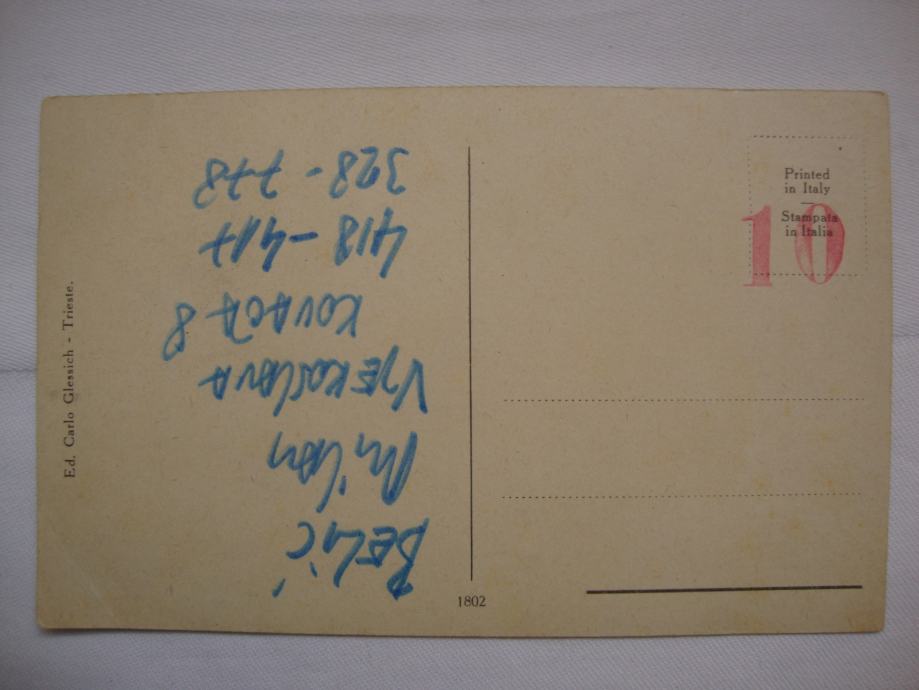 BELIĆ
Milan
VJEKOSLAVA
KOVAČA 8
418-417
328-778
Ed. Carlo Glessich - Trieste.
1802
Printed
in Italy
Stampata
in Italia
10